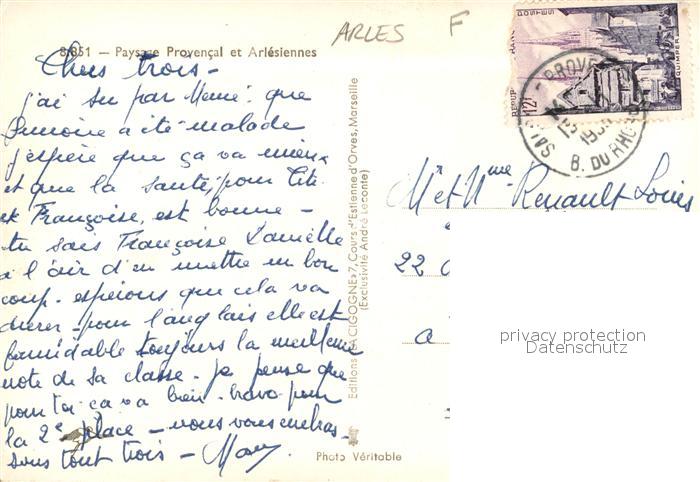 ARLES F
8.851 — Paysage Provençal et Arlésiennes
Chers trois -
j'ai su par Mémé que
a été malade
j'espère que ça va mieux
et que la santé, pour Titi
et Françoise, est bonne -
tu sais Françoise
a l'air d'en mettre un bon
coup - espérons que cela va
durer - pour l'anglais elle est
formidable toujours la meilleure
note de sa classe - je pense que
pour toi ça va bien - bravo pour
la 2e place - nous vous embras-
sons tout trois - Mary
Editions de CIGOGNE, 7, Cours d'Estienne d'Orves, Marseille
(Exclusivité André Leconte)
Photo Véritable
POSTES
QUIMPER
12F
B. DU RHONE
Mr et Mme Renault Louis
22
a
privacy protection
Datenschutz